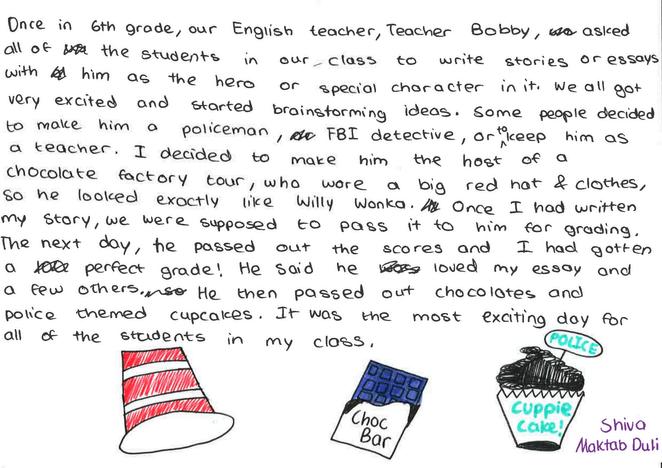 Once in 6th grade, our English teacher, Teacher Bobby, asked
all of the students in our class to write stories or essays
with him as the hero or special character in it. We all got
very excited and started brainstorming ideas. Some people decided
to make him a policeman, FBI detective, or to keep him as
a teacher. I decided to make him the host of a
chocolate factory tour, who wore a big red hat & clothes,
so he looked exactly like Willy Wonka. Once I had written
my story, we were supposed to pass it to him for grading.
The next day, he passed out the scores and I had gotten
a perfect grade! He said he loved my essay and
a few others. He then passed out chocolates and
police themed cupcakes. It was the most exciting day for
all of the students in my class.
POLICE
Choc
Bar
Cuppie
Cake!
Shiva
Maktab Duli